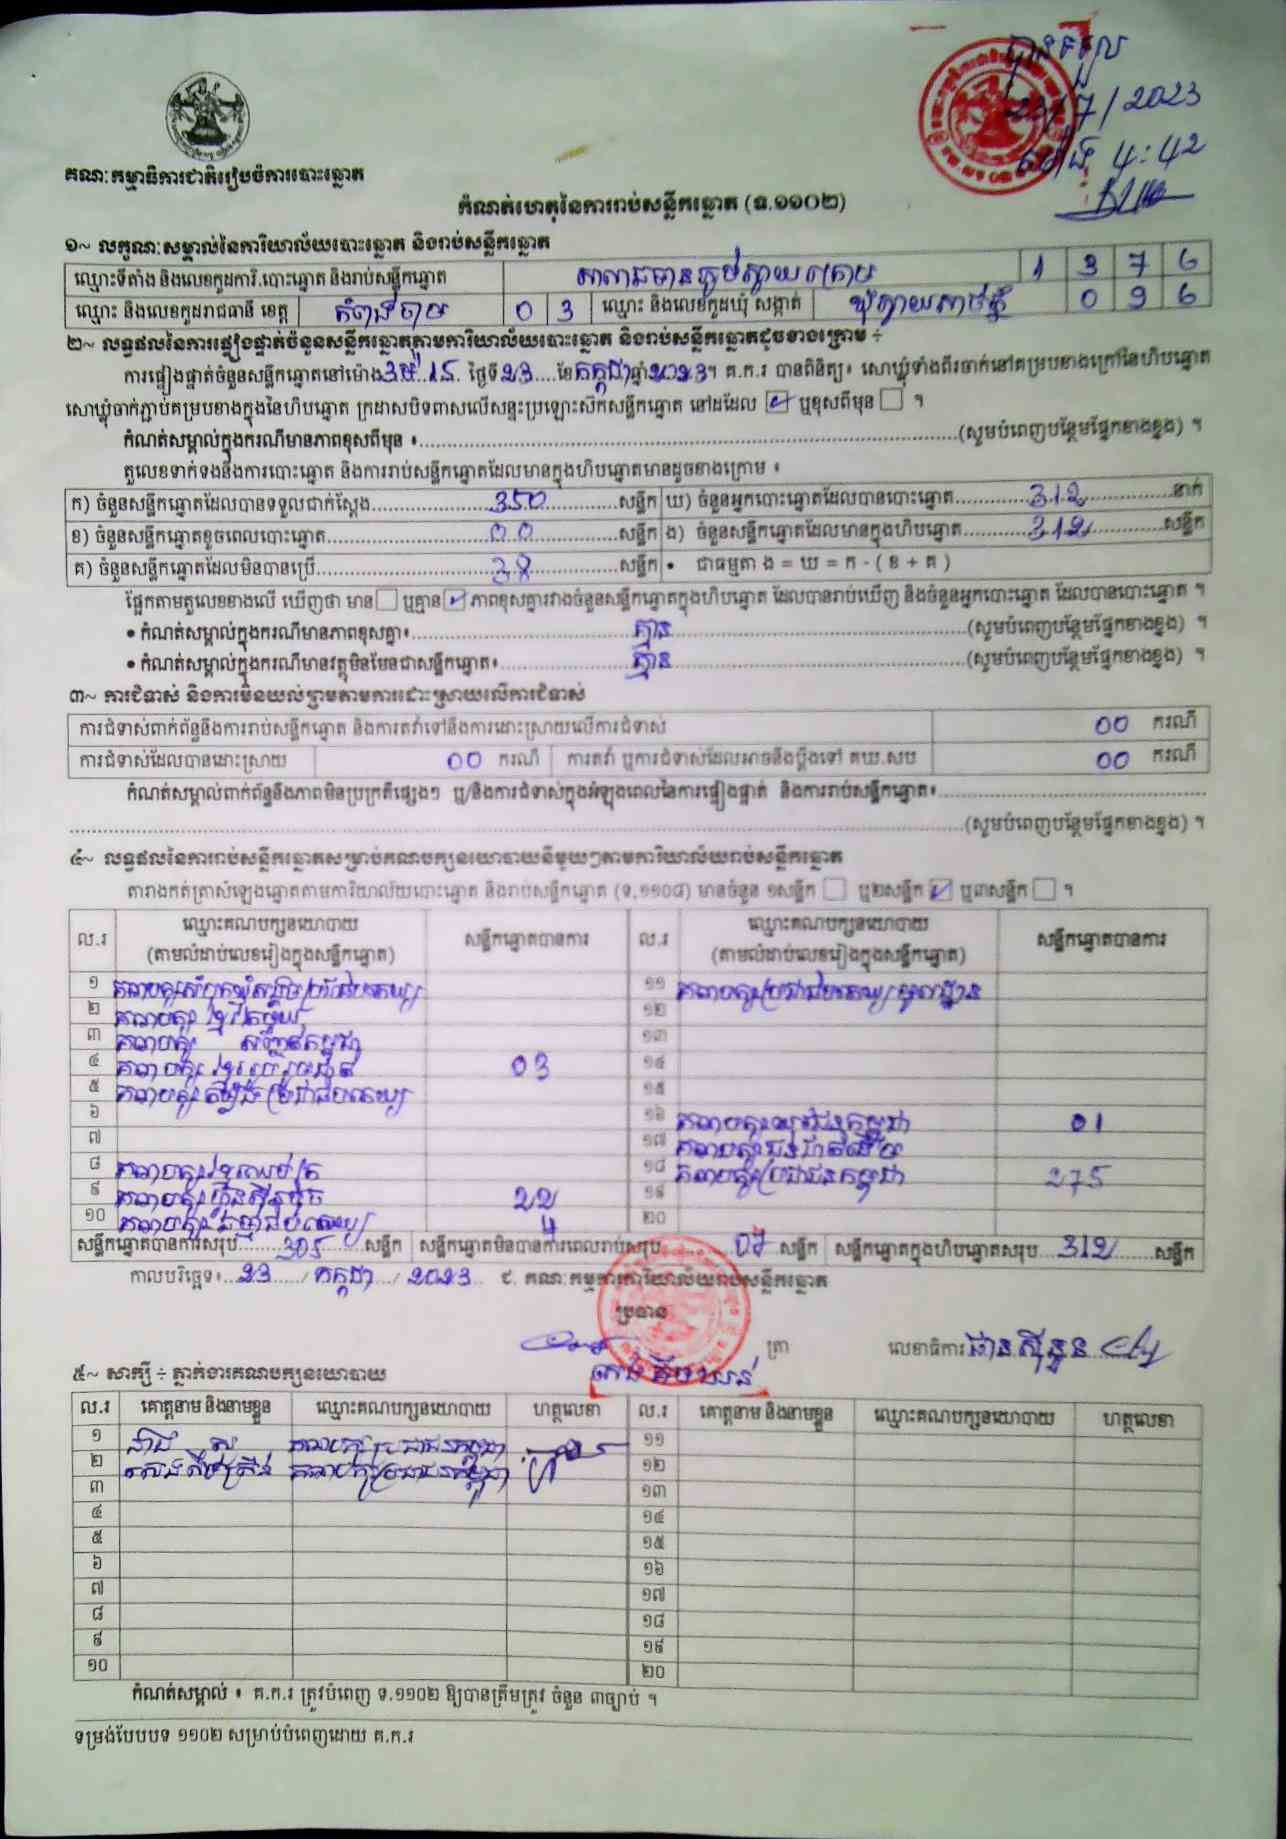 បានទទួល
23/7/2023
ម៉ោង 4:42
គណៈកម្មាធិការជាតិរៀបចំការបោះឆ្នោត
កំណត់ហេតុនៃការរាប់សន្លឹកឆ្នោត (ទ.១១០២)
១~ លក្ខណៈសម្គាល់នៃការិយាល័យបោះឆ្នោត និងរាប់សន្លឹកឆ្នោត
ឈ្មោះទីតាំង និងលេខកូដការិ.បោះឆ្នោត និងរាប់សន្លឹកឆ្នោត 1 3 7 6
ឈ្មោះ និងលេខកូដរាជធានី ខេត្ត កំពង់ចាម 0 3 ឈ្មោះ និងលេខកូដឃុំ សង្កាត់ 0 9 6
២~ លទ្ធផលនៃការផ្ទៀងផ្ទាត់ចំនួនសន្លឹកឆ្នោតតាមការិយាល័យបោះឆ្នោត និងរាប់សន្លឹកឆ្នោតដូចខាងក្រោម ÷
ការផ្ទៀងផ្ទាត់ចំនួនសន្លឹកឆ្នោតនៅម៉ោង 3 15 ថ្ងៃទី 23 ខែ កក្កដា ឆ្នាំ 2023។ គ.ក.រ បានពិនិត្យ៖ សោឃ្លុំទាំងពីរចាក់នៅគម្របខាងក្រៅនៃហិបឆ្នោត
សោឃ្លុំចាក់ភ្ជាប់គម្របខាងក្នុងនៃហិបឆ្នោត ក្រដាសបិទពាសលើសន្ទះប្រឡោះសឹកសន្លឹកឆ្នោត នៅដដែល ✓ ឬខុសពីមុន ។
កំណត់សម្គាល់ក្នុងករណីមានភាពខុសពីមុន ៖ (សូមបំពេញបន្ថែមផ្នែកខាងខ្នង) ។
តួលេខទាក់ទងនឹងការបោះឆ្នោត និងការរាប់សន្លឹកឆ្នោតដែលមានក្នុងហិបឆ្នោតមានដូចខាងក្រោម ៖
ក) ចំនួនសន្លឹកឆ្នោតដែលបានទទួលជាក់ស្តែង 350 សន្លឹក ឃ) ចំនួនអ្នកបោះឆ្នោតដែលបានបោះឆ្នោត 312 នាក់
ខ) ចំនួនសន្លឹកឆ្នោតខូចពេលបោះឆ្នោត 00 សន្លឹក ង) ចំនួនសន្លឹកឆ្នោតដែលមានក្នុងហិបឆ្នោត 312 សន្លឹក
គ) ចំនួនសន្លឹកឆ្នោតដែលមិនបានប្រើ 38 សន្លឹក • ជាធម្មតា ង = ឃ = ក - ( ខ + គ )
ផ្អែកតាមតួលេខខាងលើ ឃើញថា មាន ឬគ្មាន ✓ ភាពខុសគ្នារវាងចំនួនសន្លឹកឆ្នោតក្នុងហិបឆ្នោត ដែលបានរាប់ឃើញ និងចំនួនអ្នកបោះឆ្នោត ដែលបានបោះឆ្នោត ។
• កំណត់សម្គាល់ក្នុងករណីមានភាពខុសគ្នា៖ គ្មាន (សូមបំពេញបន្ថែមផ្នែកខាងខ្នង) ។
• កំណត់សម្គាល់ក្នុងករណីមានវត្ថុមិនមែនជាសន្លឹកឆ្នោត៖ គ្មាន (សូមបំពេញបន្ថែមផ្នែកខាងខ្នង) ។
៣~ ការជំទាស់ និងការមិនយល់ព្រមតាមការដោះស្រាយលើការជំទាស់
ការជំទាស់ពាក់ព័ន្ធនឹងការរាប់សន្លឹកឆ្នោត និងការតវ៉ាទៅនឹងការដោះស្រាយលើការជំទាស់ 00 ករណី
ការជំទាស់ដែលបានដោះស្រាយ 00 ករណី ការតវ៉ា ឬការជំទាស់ដែលអាចនឹងប្តឹងទៅ គឃ.សប 00 ករណី
កំណត់សម្គាល់ពាក់ព័ន្ធនឹងភាពមិនប្រក្រតីផ្សេងៗ ឬ/និងការជំទាស់ក្នុងអំឡុងពេលនៃការផ្ទៀងផ្ទាត់ និងការរាប់សន្លឹកឆ្នោត៖
(សូមបំពេញបន្ថែមផ្នែកខាងខ្នង) ។
៤~ លទ្ធផលនៃការរាប់សន្លឹកឆ្នោតសម្រាប់គណបក្សនយោបាយនីមួយៗតាមការិយាល័យរាប់សន្លឹកឆ្នោត
តារាងកត់ត្រាសំឡេងឆ្នោតតាមការិយាល័យបោះឆ្នោត និងរាប់សន្លឹកឆ្នោត (ទ.១១០៨) មានចំនួន ១សន្លឹក ឬ២សន្លឹក ✓ ឬ៣សន្លឹក ។
ល.រ ឈ្មោះគណបក្សនយោបាយ (តាមលំដាប់លេខរៀងក្នុងសន្លឹកឆ្នោត) សន្លឹកឆ្នោតបានការ ល.រ ឈ្មោះគណបក្សនយោបាយ (តាមលំដាប់លេខរៀងក្នុងសន្លឹកឆ្នោត) សន្លឹកឆ្នោតបានការ
១ គណបក្សសំបុកឃ្មុំសង្គមប្រជាធិបតេយ្យ ១១ គណបក្សប្រជាធិបតេយ្យមូលដ្ឋាន
២ គណបក្ស ១២
៣ គណបក្ស ១៣
៤ គណបក្ស ខ្មែររួបរួមជាតិ 03 ១៤
៥ គណបក្ស ប្រជាធិបតេយ្យ ១៥
៦ ១៦ គណបក្សយុវជនកម្ពុជា 01
៧ ១៧ គណបក្ស
៨ គណបក្ស ១៨ គណបក្សប្រជាជនកម្ពុជា 275
៩ គណបក្សហ៊្វុនស៊ិនប៉ិច 22 ១៩
១០ គណបក្សធម្មាធិបតេយ្យ 4 ២០
សន្លឹកឆ្នោតបានការសរុប 305 សន្លឹក សន្លឹកឆ្នោតមិនបានការពេលរាប់សរុប 07 សន្លឹក សន្លឹកឆ្នោតក្នុងហិបឆ្នោតសរុប 312 សន្លឹក
កាលបរិច្ឆេទ៖ 23 / កក្កដា / 2023 ជ. គណៈកម្មការការិយាល័យរាប់សន្លឹកឆ្នោត
ប្រធាន
ត្រា លេខាធិការ ផាន ស៊ីនួន
៥~ សាក្សី ÷ ភ្នាក់ងារគណបក្សនយោបាយ
ល.រ គោត្តនាម និងនាមខ្លួន ឈ្មោះគណបក្សនយោបាយ ហត្ថលេខា ល.រ គោត្តនាម និងនាមខ្លួន ឈ្មោះគណបក្សនយោបាយ ហត្ថលេខា
១ គណបក្សប្រជាជនកម្ពុជា ១១
២ គណបក្សប្រជាជនកម្ពុជា ១២
៣ ១៣
៤ ១៤
៥ ១៥
៦ ១៦
៧ ១៧
៨ ១៨
៩ ១៩
១០ ២០
កំណត់សម្គាល់ ៖ គ.ក.រ ត្រូវបំពេញ ទ.១១០២ ឱ្យបានត្រឹមត្រូវ ចំនួន ៣ច្បាប់ ។
ទម្រង់បែបបទ ១១០២ សម្រាប់បំពេញដោយ គ.ក.រ